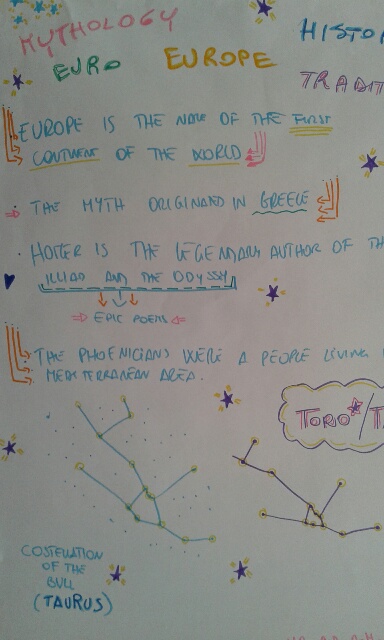 MYTHOLOGY
HISTO
EURO EUROPE
TRADIT
EUROPE IS THE NAME OF THE FIRST
CONTINENT OF THE WORLD
THE MYTH ORIGINATED IN GREECE
HOMER IS THE LEGENDARY AUTHOR OF TH
ILLIAD AND THE ODYSSY
EPIC POEMS
THE PHOENICIANS WERE A PEOPLE LIVING
MEDITERRANEAN AREA.
TORO/T
COSTELLATION
OF THE
BULL
(TAURUS)